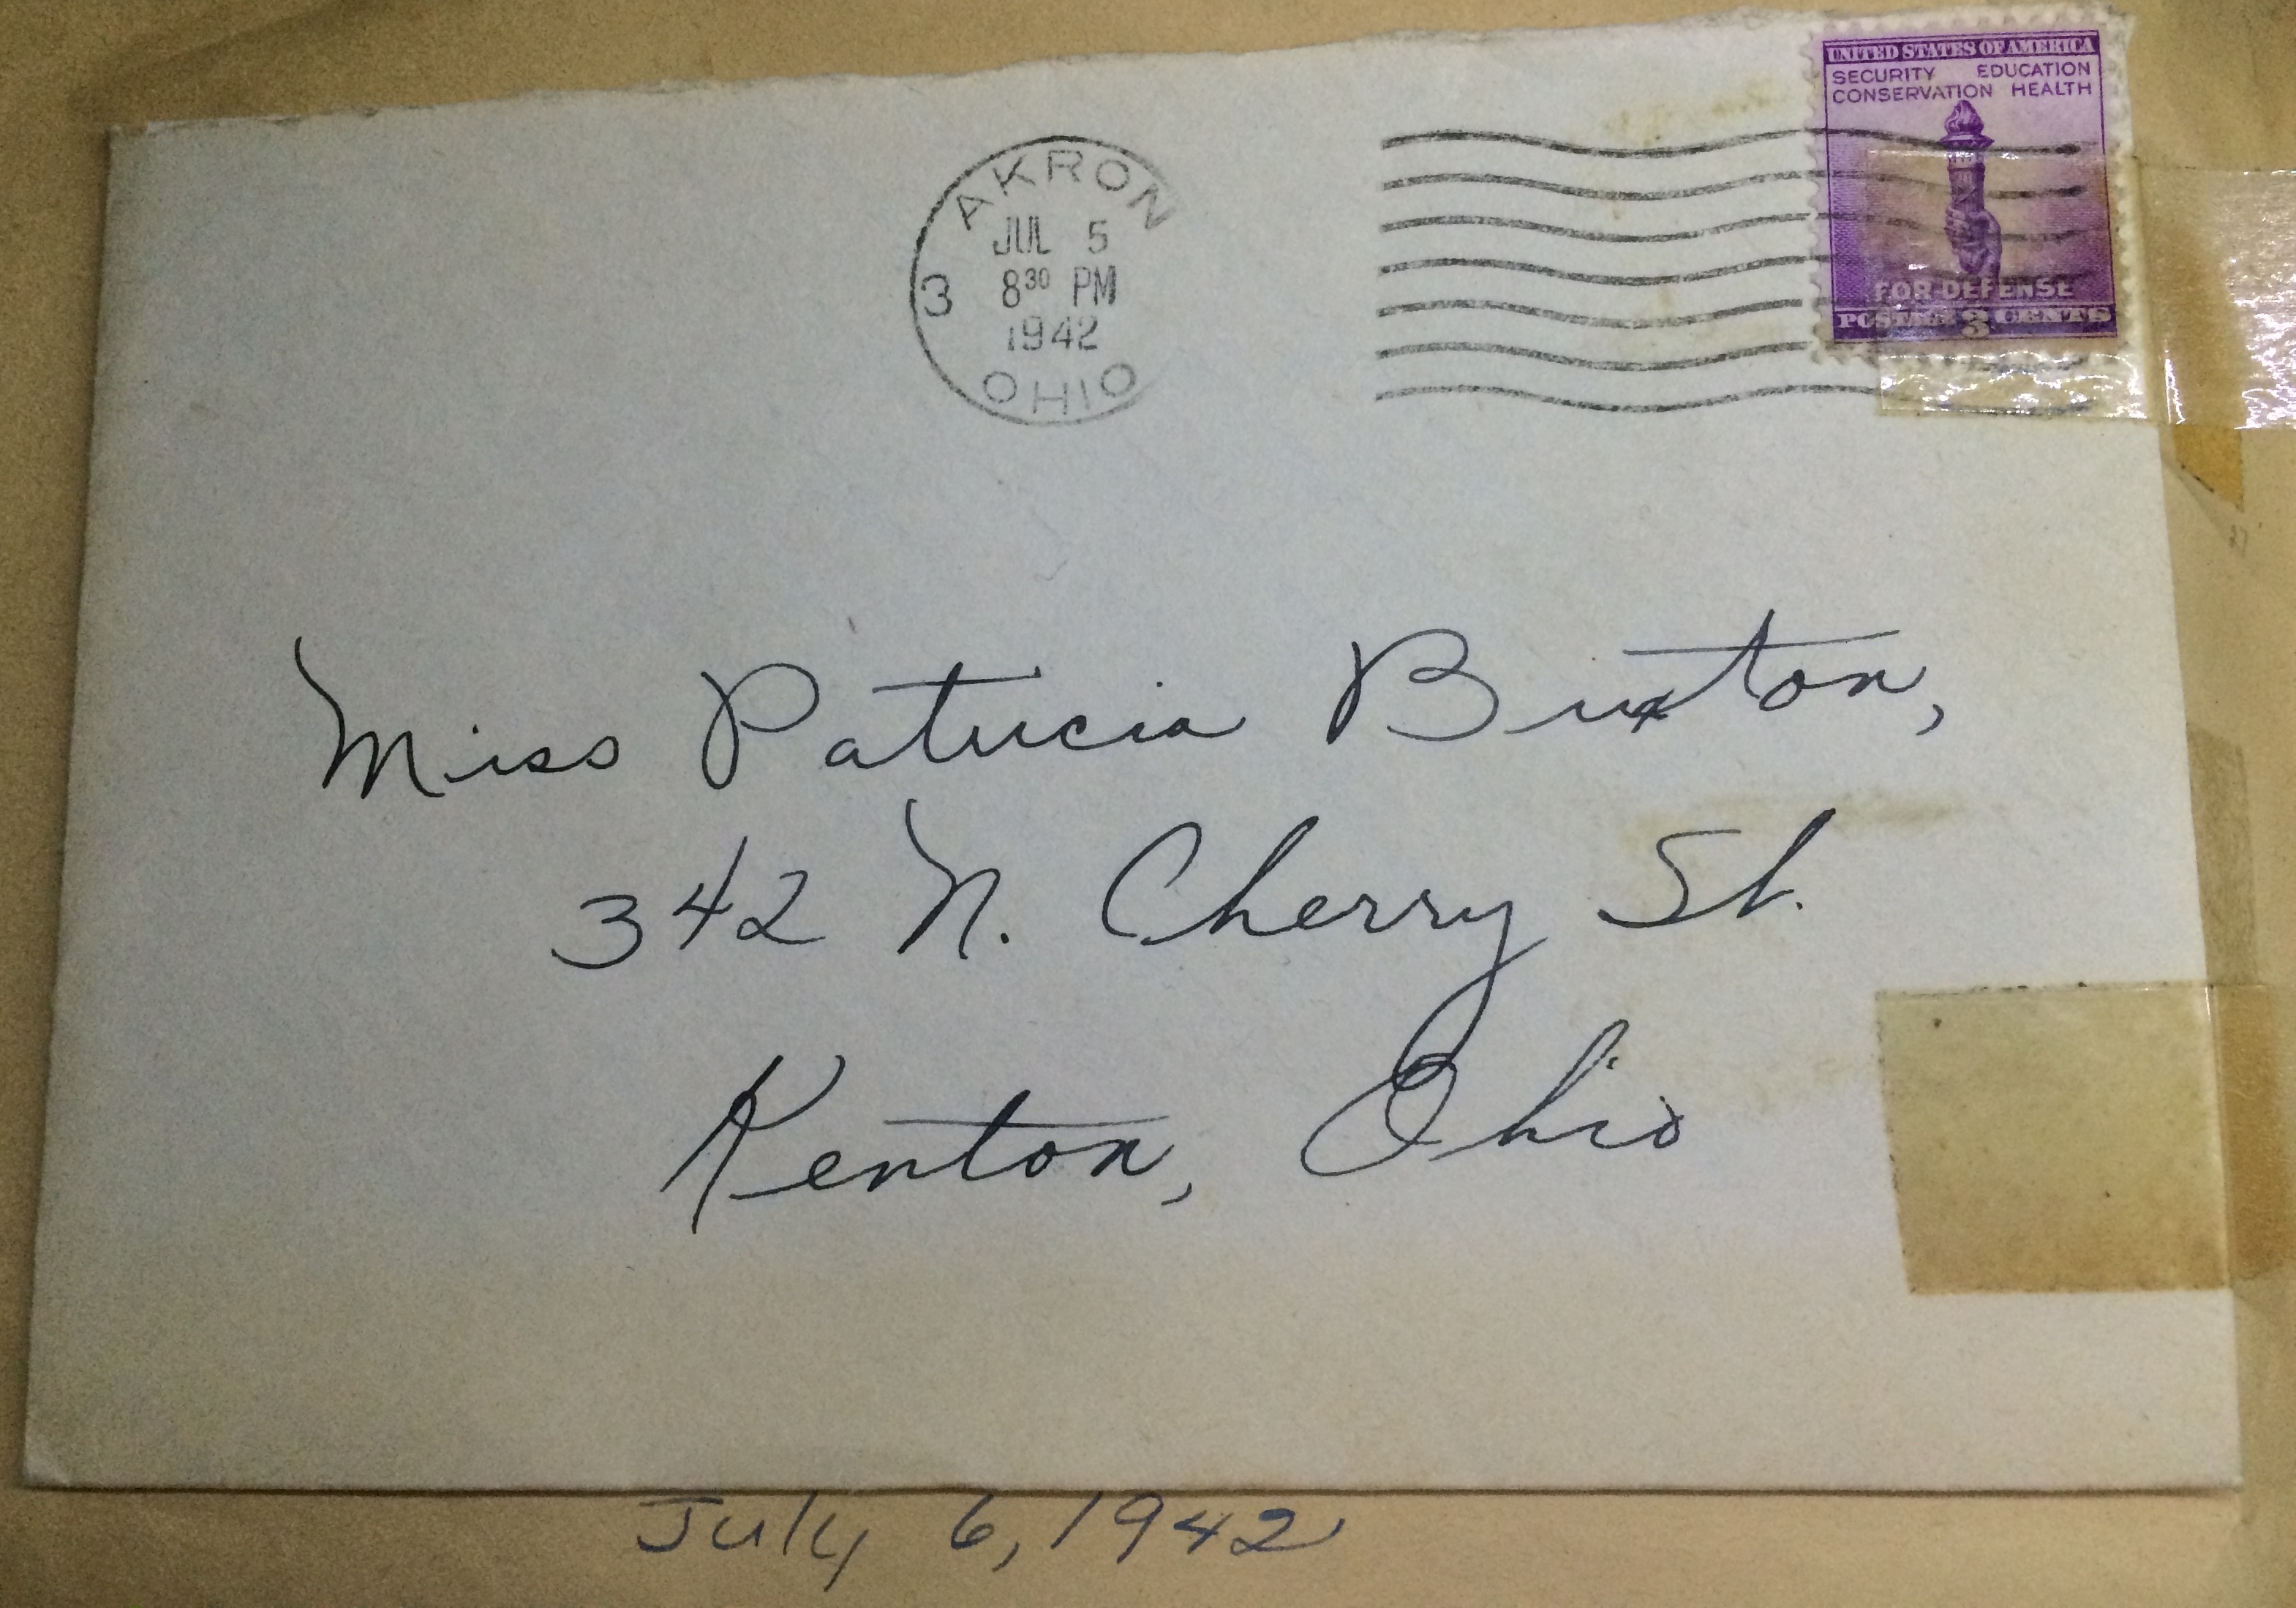 UNITED STATES OF AMERICA
SECURITY EDUCATION
CONSERVATION HEALTH
FOR DEFENSE
POSTAGE 3 CENTS
AKRON
JUL 5
3 8³⁰ PM
1942
OHIO
Miss Patricia Buxton,
342 N. Cherry St.
Kenton, Ohio
July 6, 1942